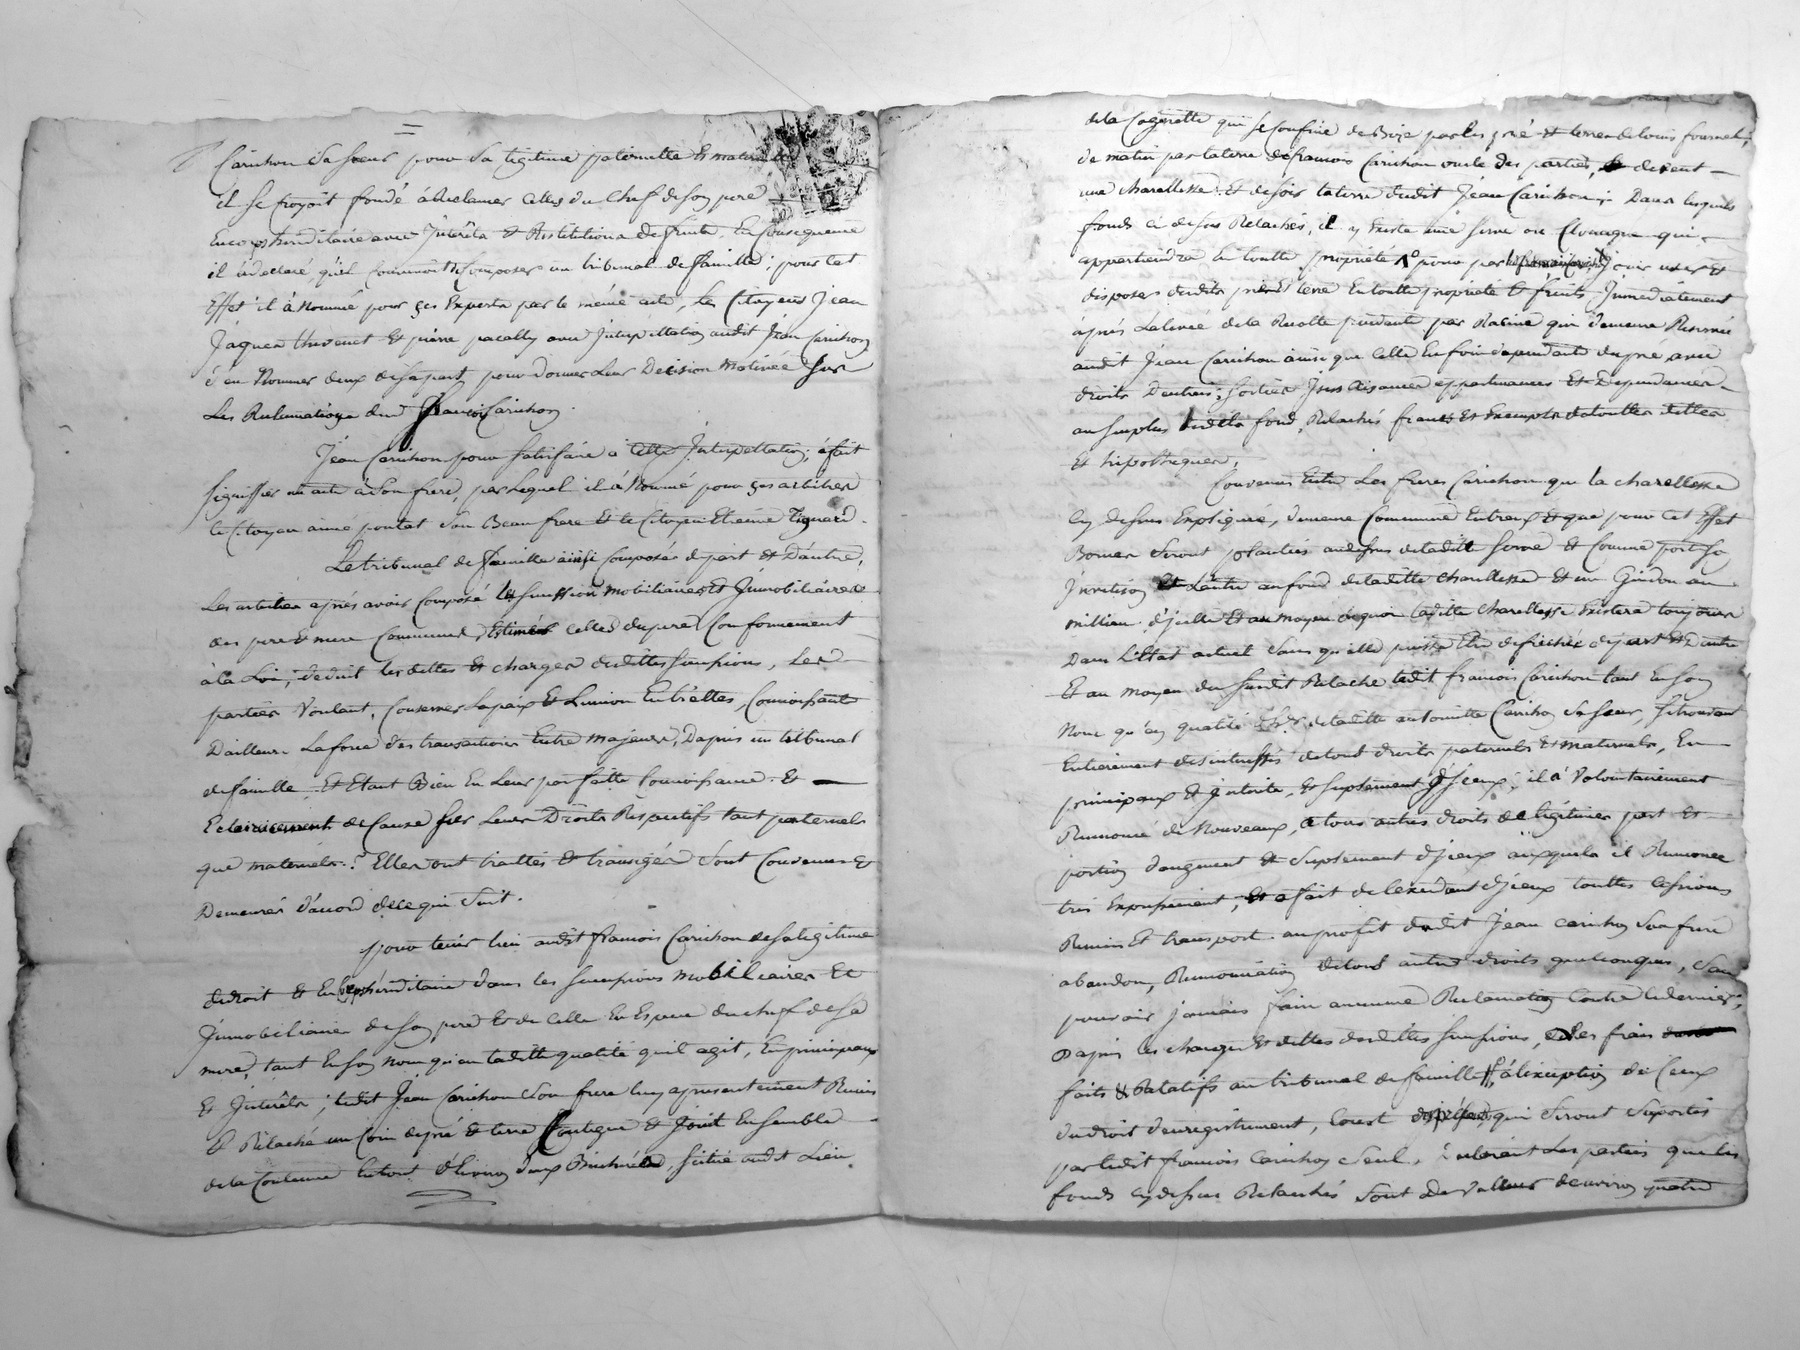 Carichon Sa Soeur pour Sa legitime paternelle Et maternelle
il Se croyoit fondé à Reclamer Celles du Chef de Son pere
Encorps hereditaire avec Intérêts Et Restitutions de fruits. En Consequence
il a declaré qu'il Convenoit de Composer un tribunal de famille; pour Cet
Effet il à Nommé pour Ses Experts par le même acte, les Citoyens Jean
Jaques thevenet Et pierre pacally avec Interpellation audit Jean Carichon
d'en Nommer deux de Sa part pour donner Leur Decision Motivée Sur
Les Reclamations dud. François Carichon.
Jean Carichon pour Satisfaire à Cette Interpellation, à fait
Signiffier un acte à Son frere, par Lequel il à Nommé pour Ses arbitres
le Citoyen aimé pontal Son Beau frere Et le Citoyen Etienne
Le tribunal de famille ainsi Composée de part Et D'autre,
Les arbitres après avoir Composé les Succession Mobiliaires Et Immobiliaires
des pere Et mere Communs, Estimés Celles du pere Conformement
à la Loi, deduit les dettes Et charges desdittes Successions, Les
parties Voulant, Conserver La paix Et L'union Entr'elles, Connoissant
D'ailleurs La force des transactions Entre Majeurs, Dapres un tribunal
de famille, Et Etant Bien En Leur parfaitte Connoissance. Et
Eclaircissements de Cause Sur Leurs Droits Respectifs tant paternels
que maternels. Elles ont traittés Et transigés Sont Convenus Et
Demeurés d'acord de ce qui Suit.
pour tenir lieu audit françois Carichon de Sa legitime
de droit Et En Corps hereditaire dans les Successions Mobiliaires Et
Immobiliaires de Son pere Et de Celle En Espece du chef de Sa
mere, tant En Son Nom qu'en laditte qualité quil agit, En principaux
Et Intérêts; ledit Jean Carichon Son frere luy a presentement Remis
Et Relaché un Coin de pré Et terre Contigue Et Joint Ensemble
de la Contenue Entout d'Environ deux Situé audit Lieu
de la qui Se Confine de Bize par les pré Et terres de louis
de matin par la terre de françois Carichon oncle des parties, de vent
une charellesse Et de Soir la terre dudit Jean Carichon; Dans lesquels
fonds Ci dessus Relachés, il y Existe une Serve ou qui
appartiendra En toutte propriété pour par Jouir user Et
disposer desdits pré Et terre En toutte propriété Et fruits, Immediatement
après La levée de la Recolte pendante par Racine qui demeure Reservée
audit Jean Carichon ainsi que Celle En foin dependante du pré, avec
droits D'entrées, Sorties Jeus Aisances appartenances Et Dependances
au Surplus lesdits fond, Relachés francs Et Exempts de touttes dettes
Et hipotheques.
Convenus Entre Les freres Carichon que la charellesse
Cy dessus Expliquée, demeure Commune Entreux Et que pour Cet Effet
Bornes Seront plantées audessus de laditte Serve Et Comme
L'autre au fond de laditte charellesse Et un Guidon au
millieu d'icelle Et au moyen dequoi laditte Charellesse Existera toujours
Dans L'Etat actuel Sans qu'elle puisse Etre defrichée de part Et D'autre
Et au moyen du Susdit Relache ledit françois Carichon tant En Son
Nom qu'en qualité de laditte antoinette Carichon Sa Soeur, Se trouvant
Entierement desinteressés de tous droits paternels Et Maternels, En
principaux Et Intérêts, Et Suplement d'iceux, il à Volontairement
Renoncé de Nouveaux, a tous autres droits de legitimes part Et
portion d'augment Et Suplement d'iceux auxquels il Renonce
tres Expressement, Et a fait de l'excedant d'iceux touttes Cessions
Remis Et transport au profit dudit Jean Carichon Son frere
abandon, Renonciation de tous autres droits quelconques, Sans
pouvoir jamais faire aucune Reclamation Contre Ce dernier,
D'apres les charges Et dettes desdittes Successions, Et les frais
faits Et Relatifs au tribunal de famille, à l'exception de Ceux
du droit d'enregistrement, qui Seront Suportés
par ledit françois Carichon Seul, Declarant Les parties que les
fonds Cy dessus Relachés Sont De Valleur d'environ quatre